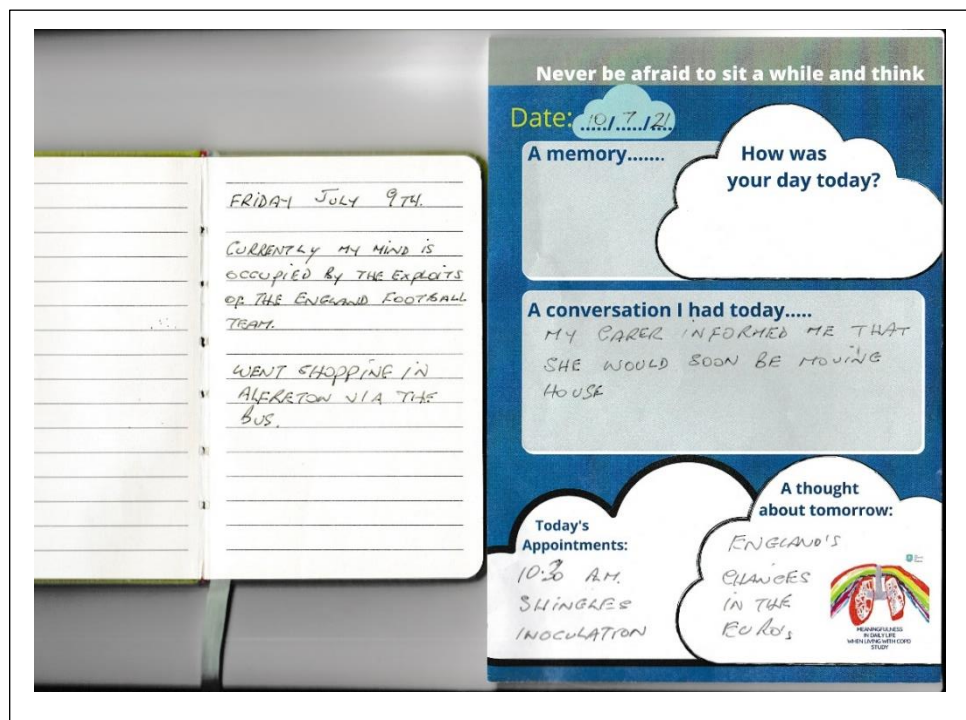 FRIDAY JULY 9TH.
CURRENTLY MY MIND IS
OCCUPIED BY THE EXPLOITS
OF THE ENGLAND FOOTBALL
TEAM.
WENT SHOPPING IN
ALFRETON VIA THE
BUS.
Never be afraid to sit a while and think
Date: 10/7/21
A memory.......
How was
your day today?
A conversation I had today.....
MY CARER INFORMED ME THAT
SHE WOULD SOON BE MOVING
HOUSE
Today's
Appointments:
10:30 A.M.
SHINGLES
INOCULATION
A thought
about tomorrow:
ENGLAND'S
CHANCES
IN THE
EUROS
MEANINGFULNESS
IN DAILY LIFE
WHEN LIVING WITH COPD
STUDY